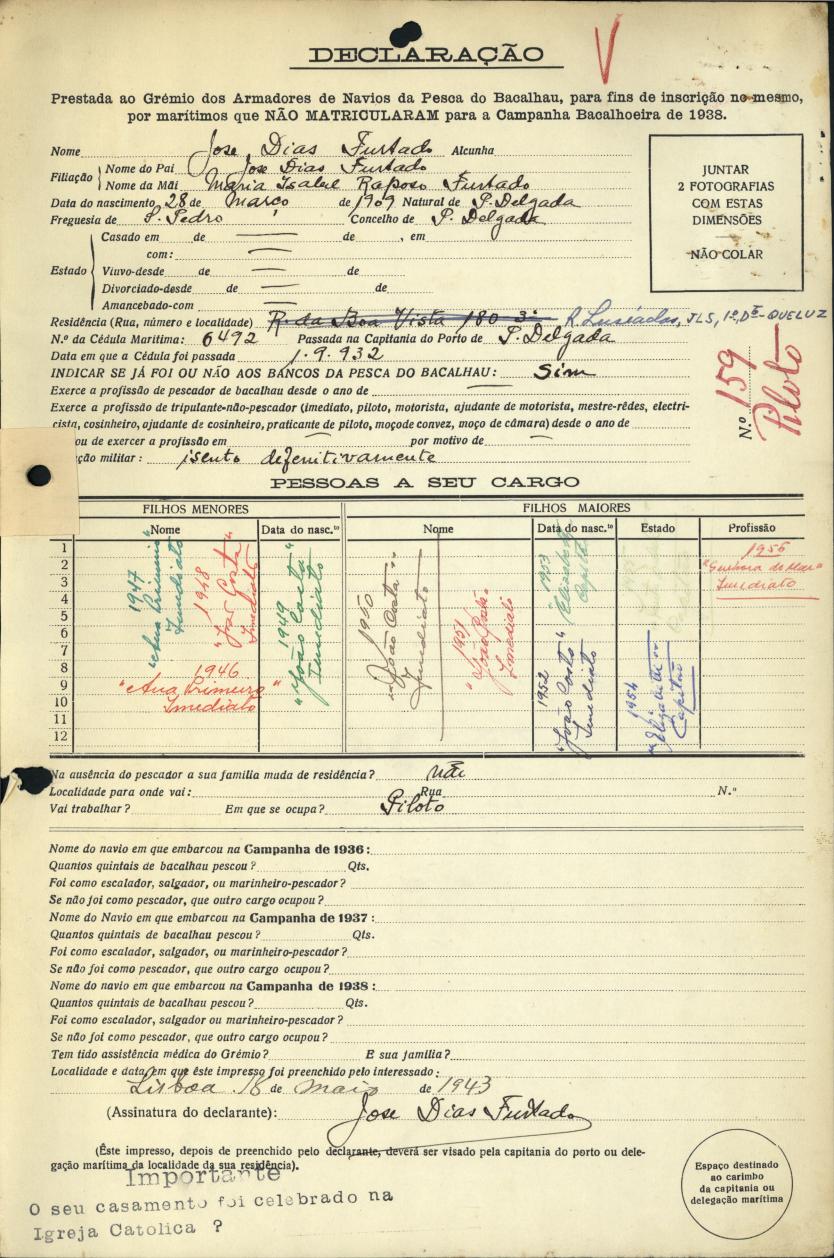 DECLARAÇÃO
V
Prestada ao Grémio dos Armadores de Navios da Pesca do Bacalhau, para fins de inscrição no mesmo,
por marítimos que NÃO MATRICULARAM para a Campanha Bacalhoeira de 1938.
Nome Jose Dias Furtado Alcunha
Filiação Nome do Pai Jose Dias Furtado
Nome da Mãi Maria Isabel Raposo Furtado
Data do nascimento 28 de Março de 1909 Natural de P. Delgada
Freguesia de S. Pedro Concelho de P. Delgada
JUNTAR
2 FOTOGRAFIAS
COM ESTAS
DIMENSÕES
NÃO COLAR
Estado
Casado em de de , em
com:
Viuvo-desde de de
Divorciado-desde de de
Amancebado-com
Residência (Rua, número e localidade) R. da Boa Vista 180 3º R. Lusíadas, JLS, 1º, Dto - QUELUZ
N.º da Cédula Marítima: 6492 Passada na Capitania do Porto de P. Delgada
Data em que a Cédula foi passada 1.9.932
INDICAR SE JÁ FOI OU NÃO AOS BANCOS DA PESCA DO BACALHAU: Sim
N.º 159
Piloto
Exerce a profissão de pescador de bacalhau desde o ano de
Exerce a profissão de tripulante-não-pescador (imediato, piloto, motorista, ajudante de motorista, mestre-rêdes, electri-
cista, cosinheiro, ajudante de cosinheiro, praticante de piloto, moço de convez, moço de câmara) desde o ano de
ou de exercer a profissão em por motivo de
ção militar: isento defenitivamente
PESSOAS A SEU CARGO
FILHOS MENORES FILHOS MAIORES
Nome Data do nasc.to Nome Data do nasc.to Estado Profissão
1
2
3
4
5
6
7
8
9
10
11
12
1946
"Ana Primeiro"
Imediato
1947
"Ana Primeiro"
Imediato
1948
"João Costa"
Imediato
1949
"João Costa"
Imediato
1950
"João Costa"
Imediato
1951
"João Costa"
Imediato
1952
"João Costo"
Imediato
1953
"Elizabeth"
Capitão
1954
"Elizabeth"
Capitão
1956
"Senhora do Mar"
Imediato
Na ausência do pescador a sua familia muda de residência? não
Localidade para onde vai: Rua N.º
Vai trabalhar? Em que se ocupa? Piloto
Nome do navio em que embarcou na Campanha de 1936:
Quantos quintais de bacalhau pescou? Qts.
Foi como escalador, salgador, ou marinheiro-pescador?
Se não foi como pescador, que outro cargo ocupou?
Nome do Navio em que embarcou na Campanha de 1937:
Quantos quintais de bacalhau pescou? Qts.
Foi como escalador, salgador, ou marinheiro-pescador?
Se não foi como pescador, que outro cargo ocupou?
Nome do navio em que embarcou na Campanha de 1938:
Quantos quintais de bacalhau pescou? Qts.
Foi como escalador, salgador ou marinheiro-pescador?
Se não foi como pescador, que outro cargo ocupou?
Tem tido assistência médica do Grémio? E sua família?
Localidade e data em que êste impresso foi preenchido pelo interessado:
Lisboa 18 de Maio de 1943
(Assinatura do declarante): Jose Dias Furtado
(Êste impresso, depois de preenchido pelo declarante, deverá ser visado pela capitania do porto ou dele-
gação marítima da localidade da sua residência).
Importante
O seu casamento foi celebrado na
Igreja Catolica ?
Espaço destinado
ao carimbo
da capitania ou
delegação marítima